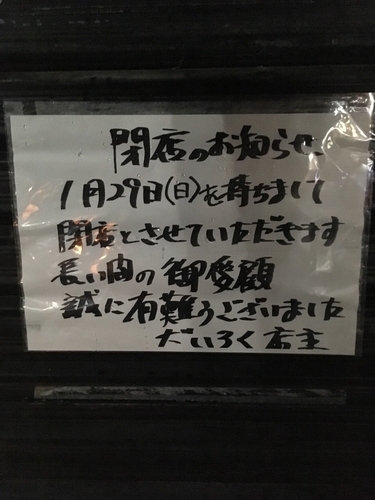 閉店のお知らせ、
1月29日(日)を持ちまして
閉店とさせていただきます
長い間の御愛顧
誠に有難うございました
だいろく店主